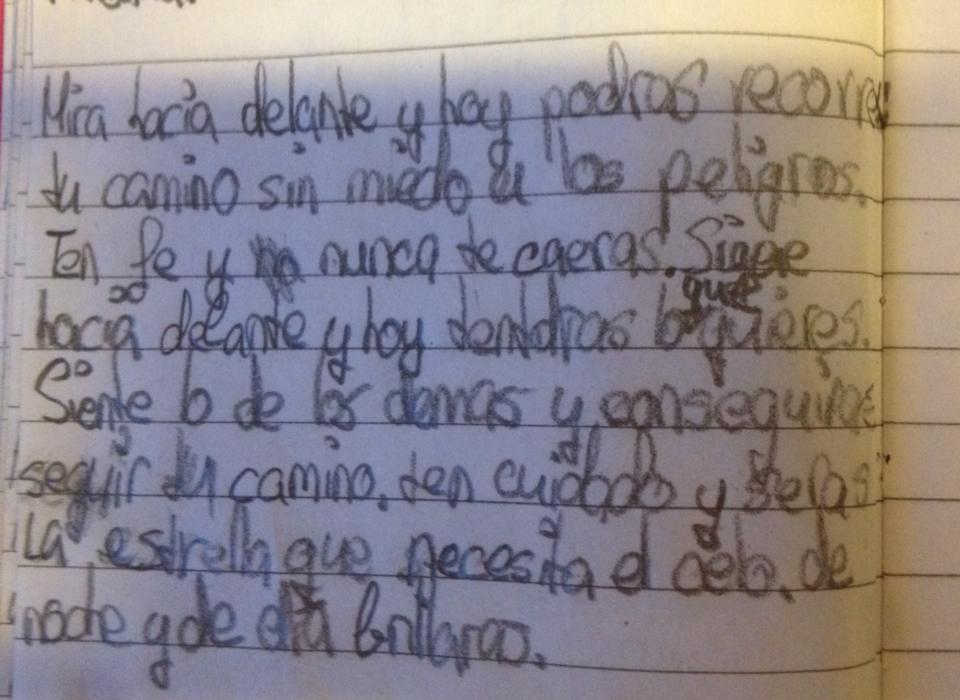 Mira hacia delante y hoy podras recorrer
tu camino sin miedo a los peligros.
Ten fe y nunca te caeras. Sigue
hacia delante y hoy tendras lo que quieres.
Siente lo de los demas y conseguiras
seguir tu camino. ten cuidado y seras
La estrella que necesita el cielo. de
noche y de dia brillaras.